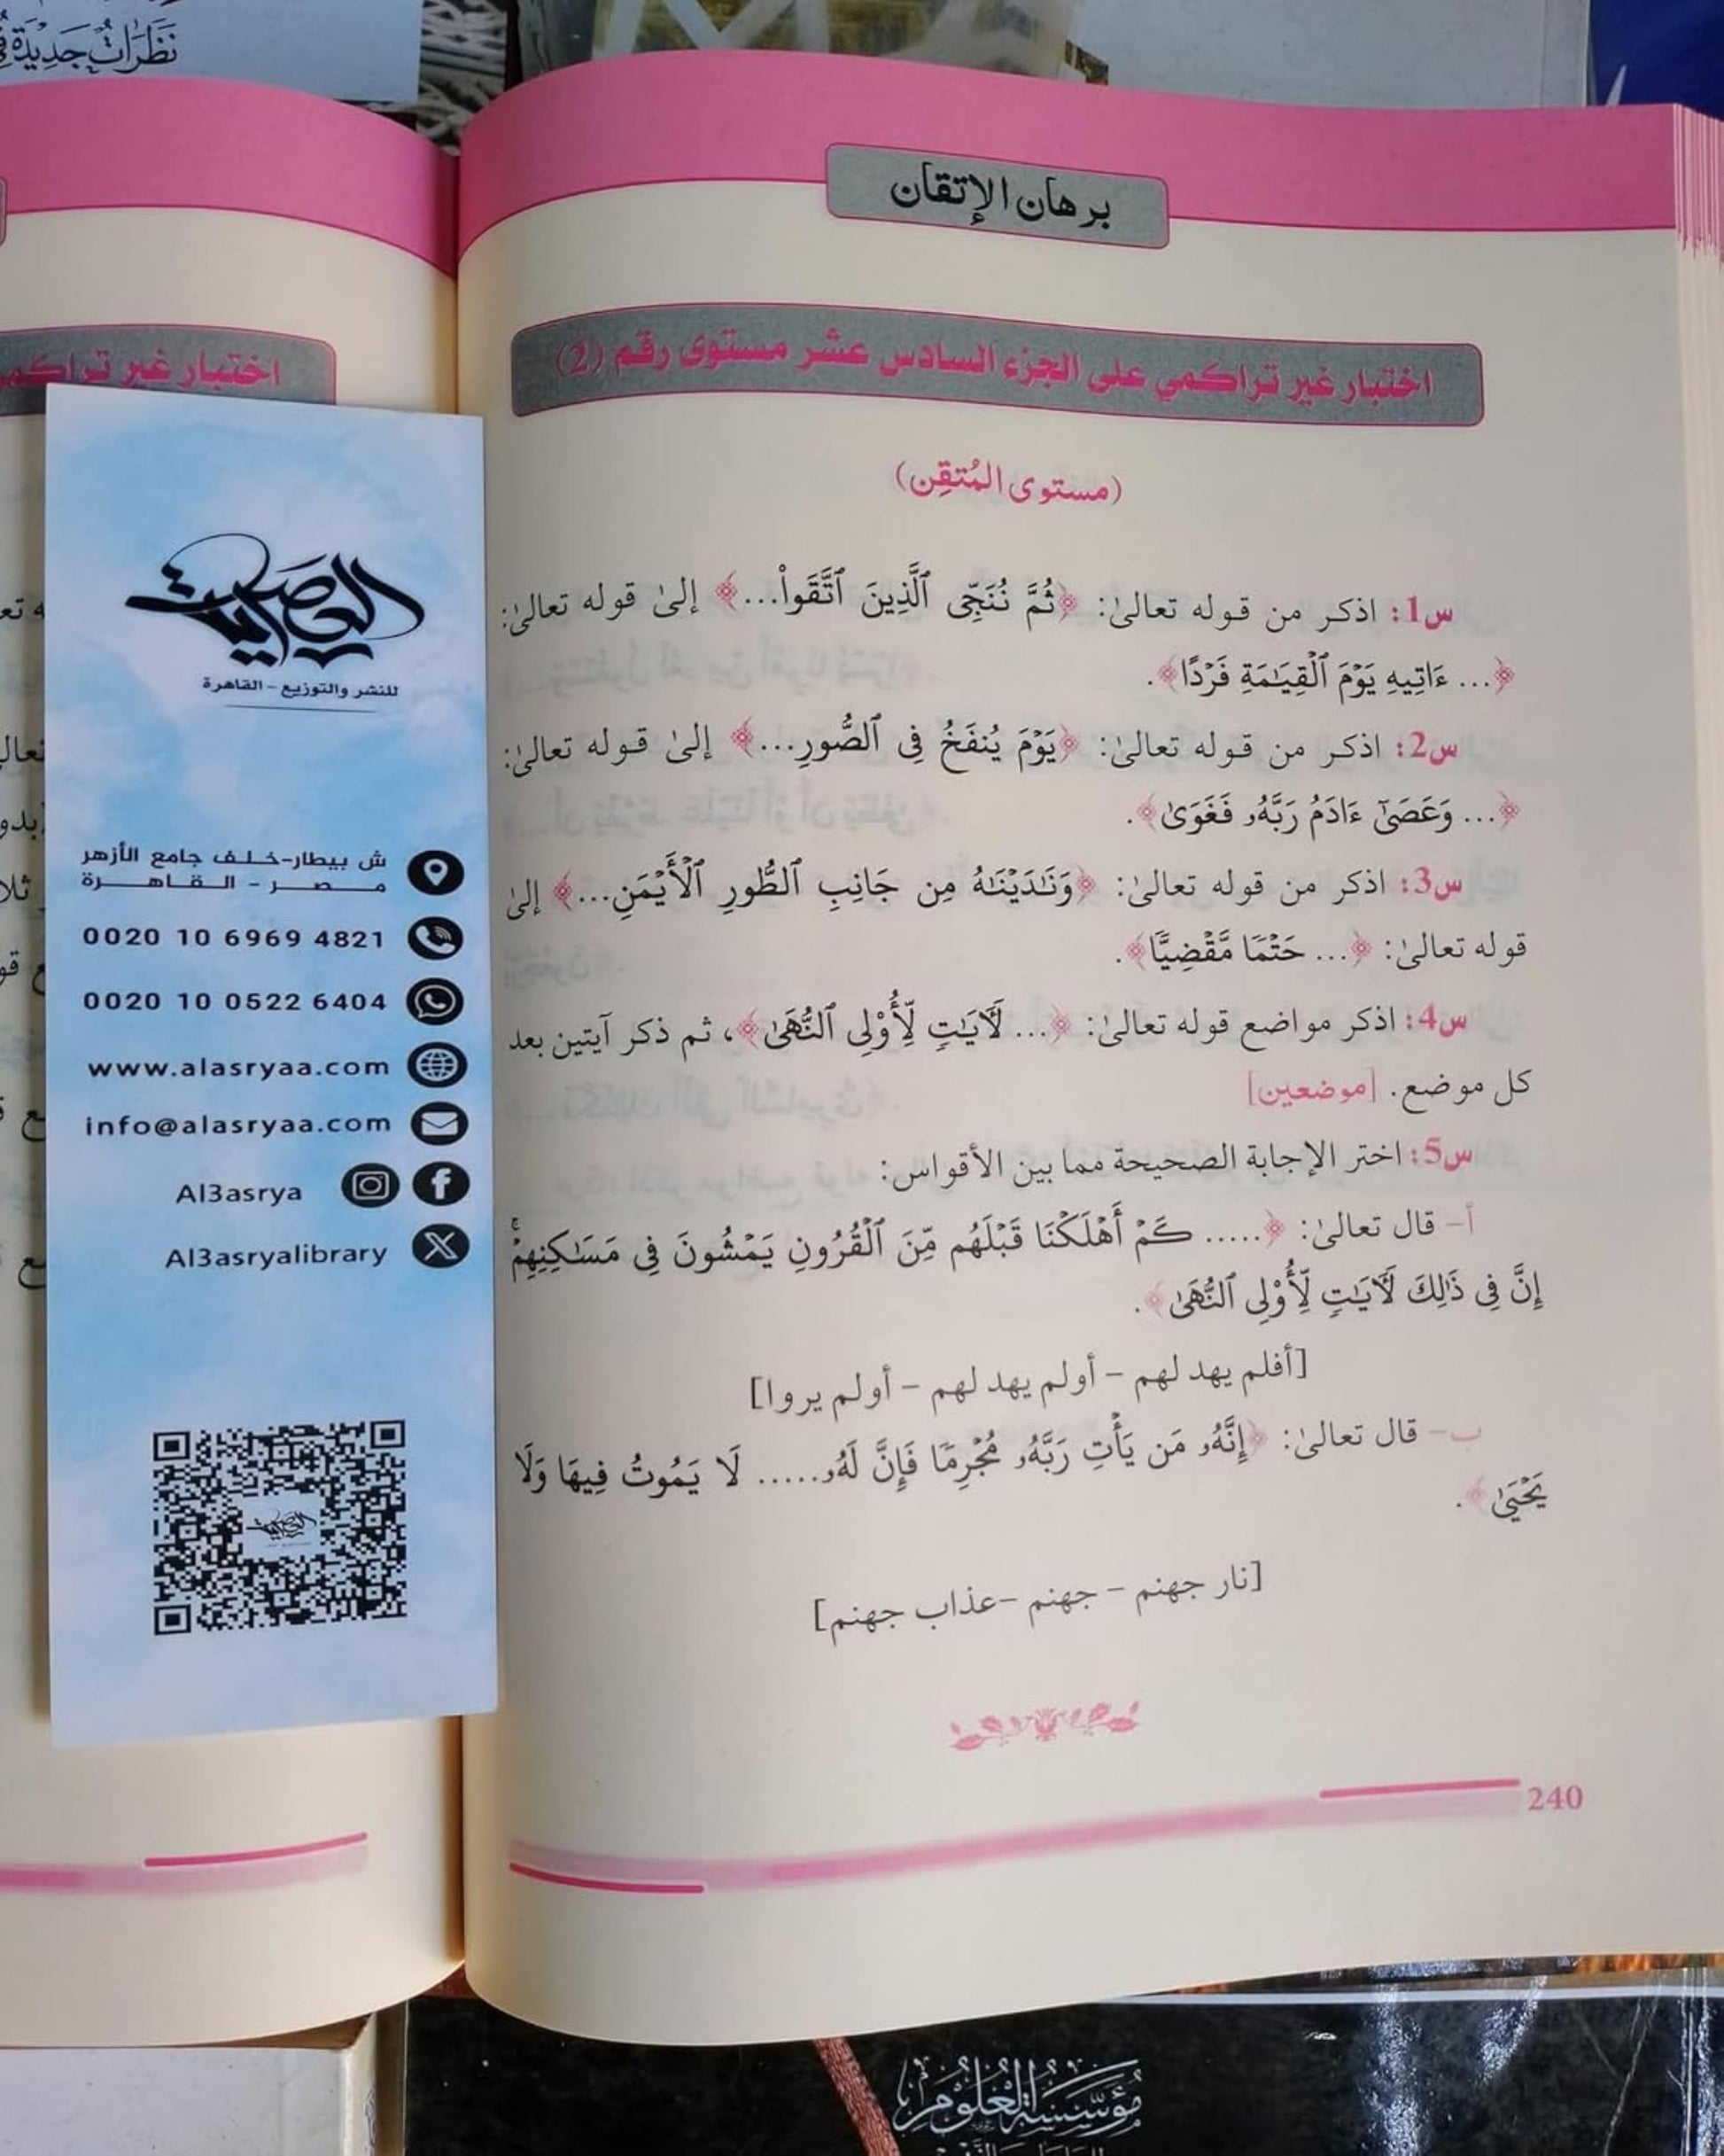 نَظَرَاتٌ جَدِيْدَة
برهان الإتقان
اختبار غير تراكمي على الجزء السادس عشر مستوى رقم (2)
(مستوى المُتقِن)
س1: اذكر من قوله تعالىٰ: ﴿ثُمَّ نُنَجِّى ٱلَّذِينَ ٱتَّقَواْ...﴾ إلىٰ قوله تعالىٰ:
﴿... ءَاتِيهِ يَوْمَ ٱلْقِيَـٰمَةِ فَرْدًا﴾.
س2: اذكر من قوله تعالىٰ: ﴿يَوْمَ يُنفَخُ فِى ٱلصُّورِ...﴾ إلىٰ قوله تعالىٰ:
﴿... وَعَصَىٰٓ ءَادَمُ رَبَّهُۥ فَغَوَىٰ﴾.
س3: اذكر من قوله تعالىٰ: ﴿وَنَـٰدَيْنَـٰهُ مِن جَانِبِ ٱلطُّورِ ٱلْأَيْمَنِ...﴾ إلىٰ
قوله تعالىٰ: ﴿... حَتْمًا مَّقْضِيًّا﴾.
س4: اذكر مواضع قوله تعالىٰ: ﴿... لَـَٔايَـٰتٍ لِّأُوْلِى ٱلنُّهَىٰ﴾، ثم ذكر آيتين بعد
كل موضع. [موضعين]
س5: اختر الإجابة الصحيحة مما بين الأقواس:
أ- قال تعالىٰ: ﴿..... كَمْ أَهْلَكْنَا قَبْلَهُم مِّنَ ٱلْقُرُونِ يَمْشُونَ فِى مَسَـٰكِنِهِمْۚ
إِنَّ فِى ذَٰلِكَ لَـَٔايَـٰتٍ لِّأُوْلِى ٱلنُّهَىٰ﴾.
[أفلم يهد لهم - أولم يهد لهم - أولم يروا]
ب- قال تعالىٰ: ﴿إِنَّهُۥ مَن يَأْتِ رَبَّهُۥ مُجْرِمًا فَإِنَّ لَهُۥ..... لَا يَمُوتُ فِيهَا وَلَا
يَحْيَىٰ﴾.
[نار جهنم - جهنم -عذاب جهنم]
240
اختبار غير تراكم
العصرية
للنشر والتوزيع - القاهرة
ش بيطار-خلف جامع الأزهر
مصر - القاهرة
0020 10 6969 4821
0020 10 0522 6404
www.alasryaa.com
info@alasryaa.com
Al3asrya
Al3asryalibrary
مُؤَسَّسَةُ العُلُوْمِ